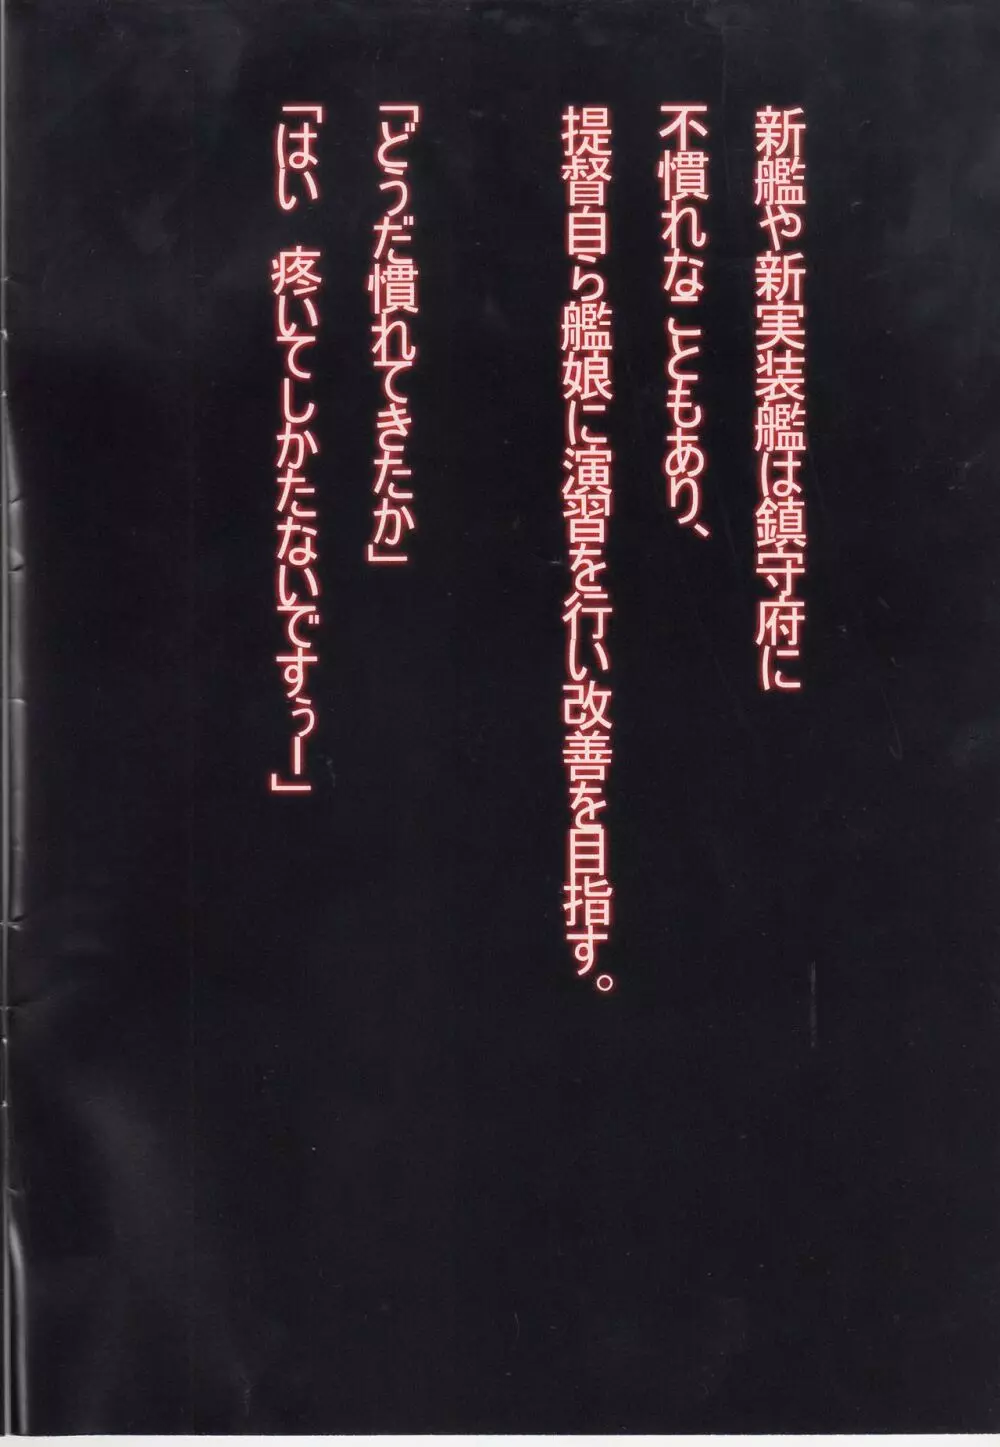 新艦や新実装艦は鎮守府に
不慣れなこともあり、
提督自ら艦娘に演習を行い改善を目指す。
「どうだ慣れてきたか」
「はい　疼いてしかたないですぅー」